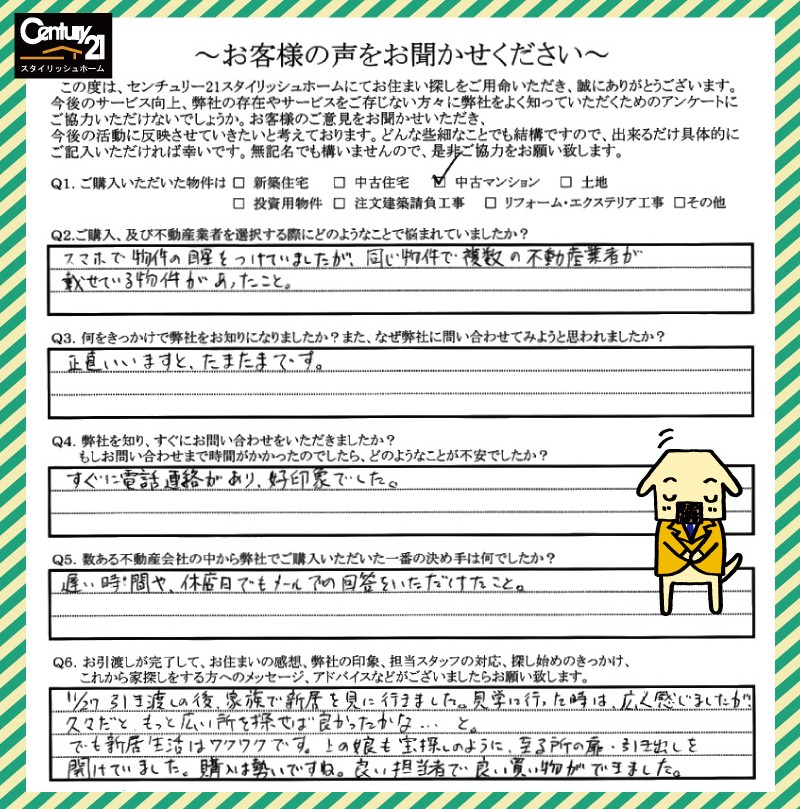 Century 21
スタイリッシュホーム
～お客様の声をお聞かせください～
この度は、センチュリー21スタイリッシュホームにてお住まい探しをご用命いただき、誠にありがとうございます。
今後のサービス向上、弊社の存在やサービスをご存じない方々に弊社をよく知っていただくためのアンケートに
ご協力いただけないでしょうか。お客様のご意見をお聞かせいただき、
今後の活動に反映させていきたいと考えております。どんな些細なことでも結構ですので、出来るだけ具体的に
ご記入いただければ幸いです。無記名でも構いませんので、是非ご協力をお願い致します。
Q1. ご購入いただいた物件は □ 新築住宅 □ 中古住宅 ☑ 中古マンション □ 土地
□ 投資用物件 □ 注文建築請負工事 □ リフォーム・エクステリア工事 □その他
Q2.ご購入、及び不動産業者を選択する際にどのようなことで悩まれていましたか?
スマホで物件の目星をつけていましたが、同じ物件で複数の不動産業者が
載せている物件があったこと。
Q3. 何をきっかけで弊社をお知りになりましたか?また、なぜ弊社に問い合わせてみようと思われましたか?
正直いいますと、たまたまです。
Q4. 弊社を知り、すぐにお問い合わせをいただきましたか?
もしお問い合わせまで時間がかかったのでしたら、どのようなことが不安でしたか?
すぐに電話連絡があり、好印象でした。
Q5. 数ある不動産会社の中から弊社でご購入いただいた一番の決め手は何でしたか?
遅い時間や、休店日でもメールでの回答をいただけたこと。
Q6. お引渡しが完了して、お住まいの感想、弊社の印象、担当スタッフの対応、探し始めのきっかけ、
これから家探しをする方へのメッセージ、アドバイスなどがございましたらお願い致します。
11/27 引き渡しの後、家族で新居を見に行きました。見学に行った時は、広く感じましたが、
久々だと、もっと広い所を探せば良かったかな…と。
でも新居生活はワクワクです。上の娘も宝探しのように、至る所の扉・引き出しを
開けていました。購入は勢いですね。良い担当者で良い買い物ができました。